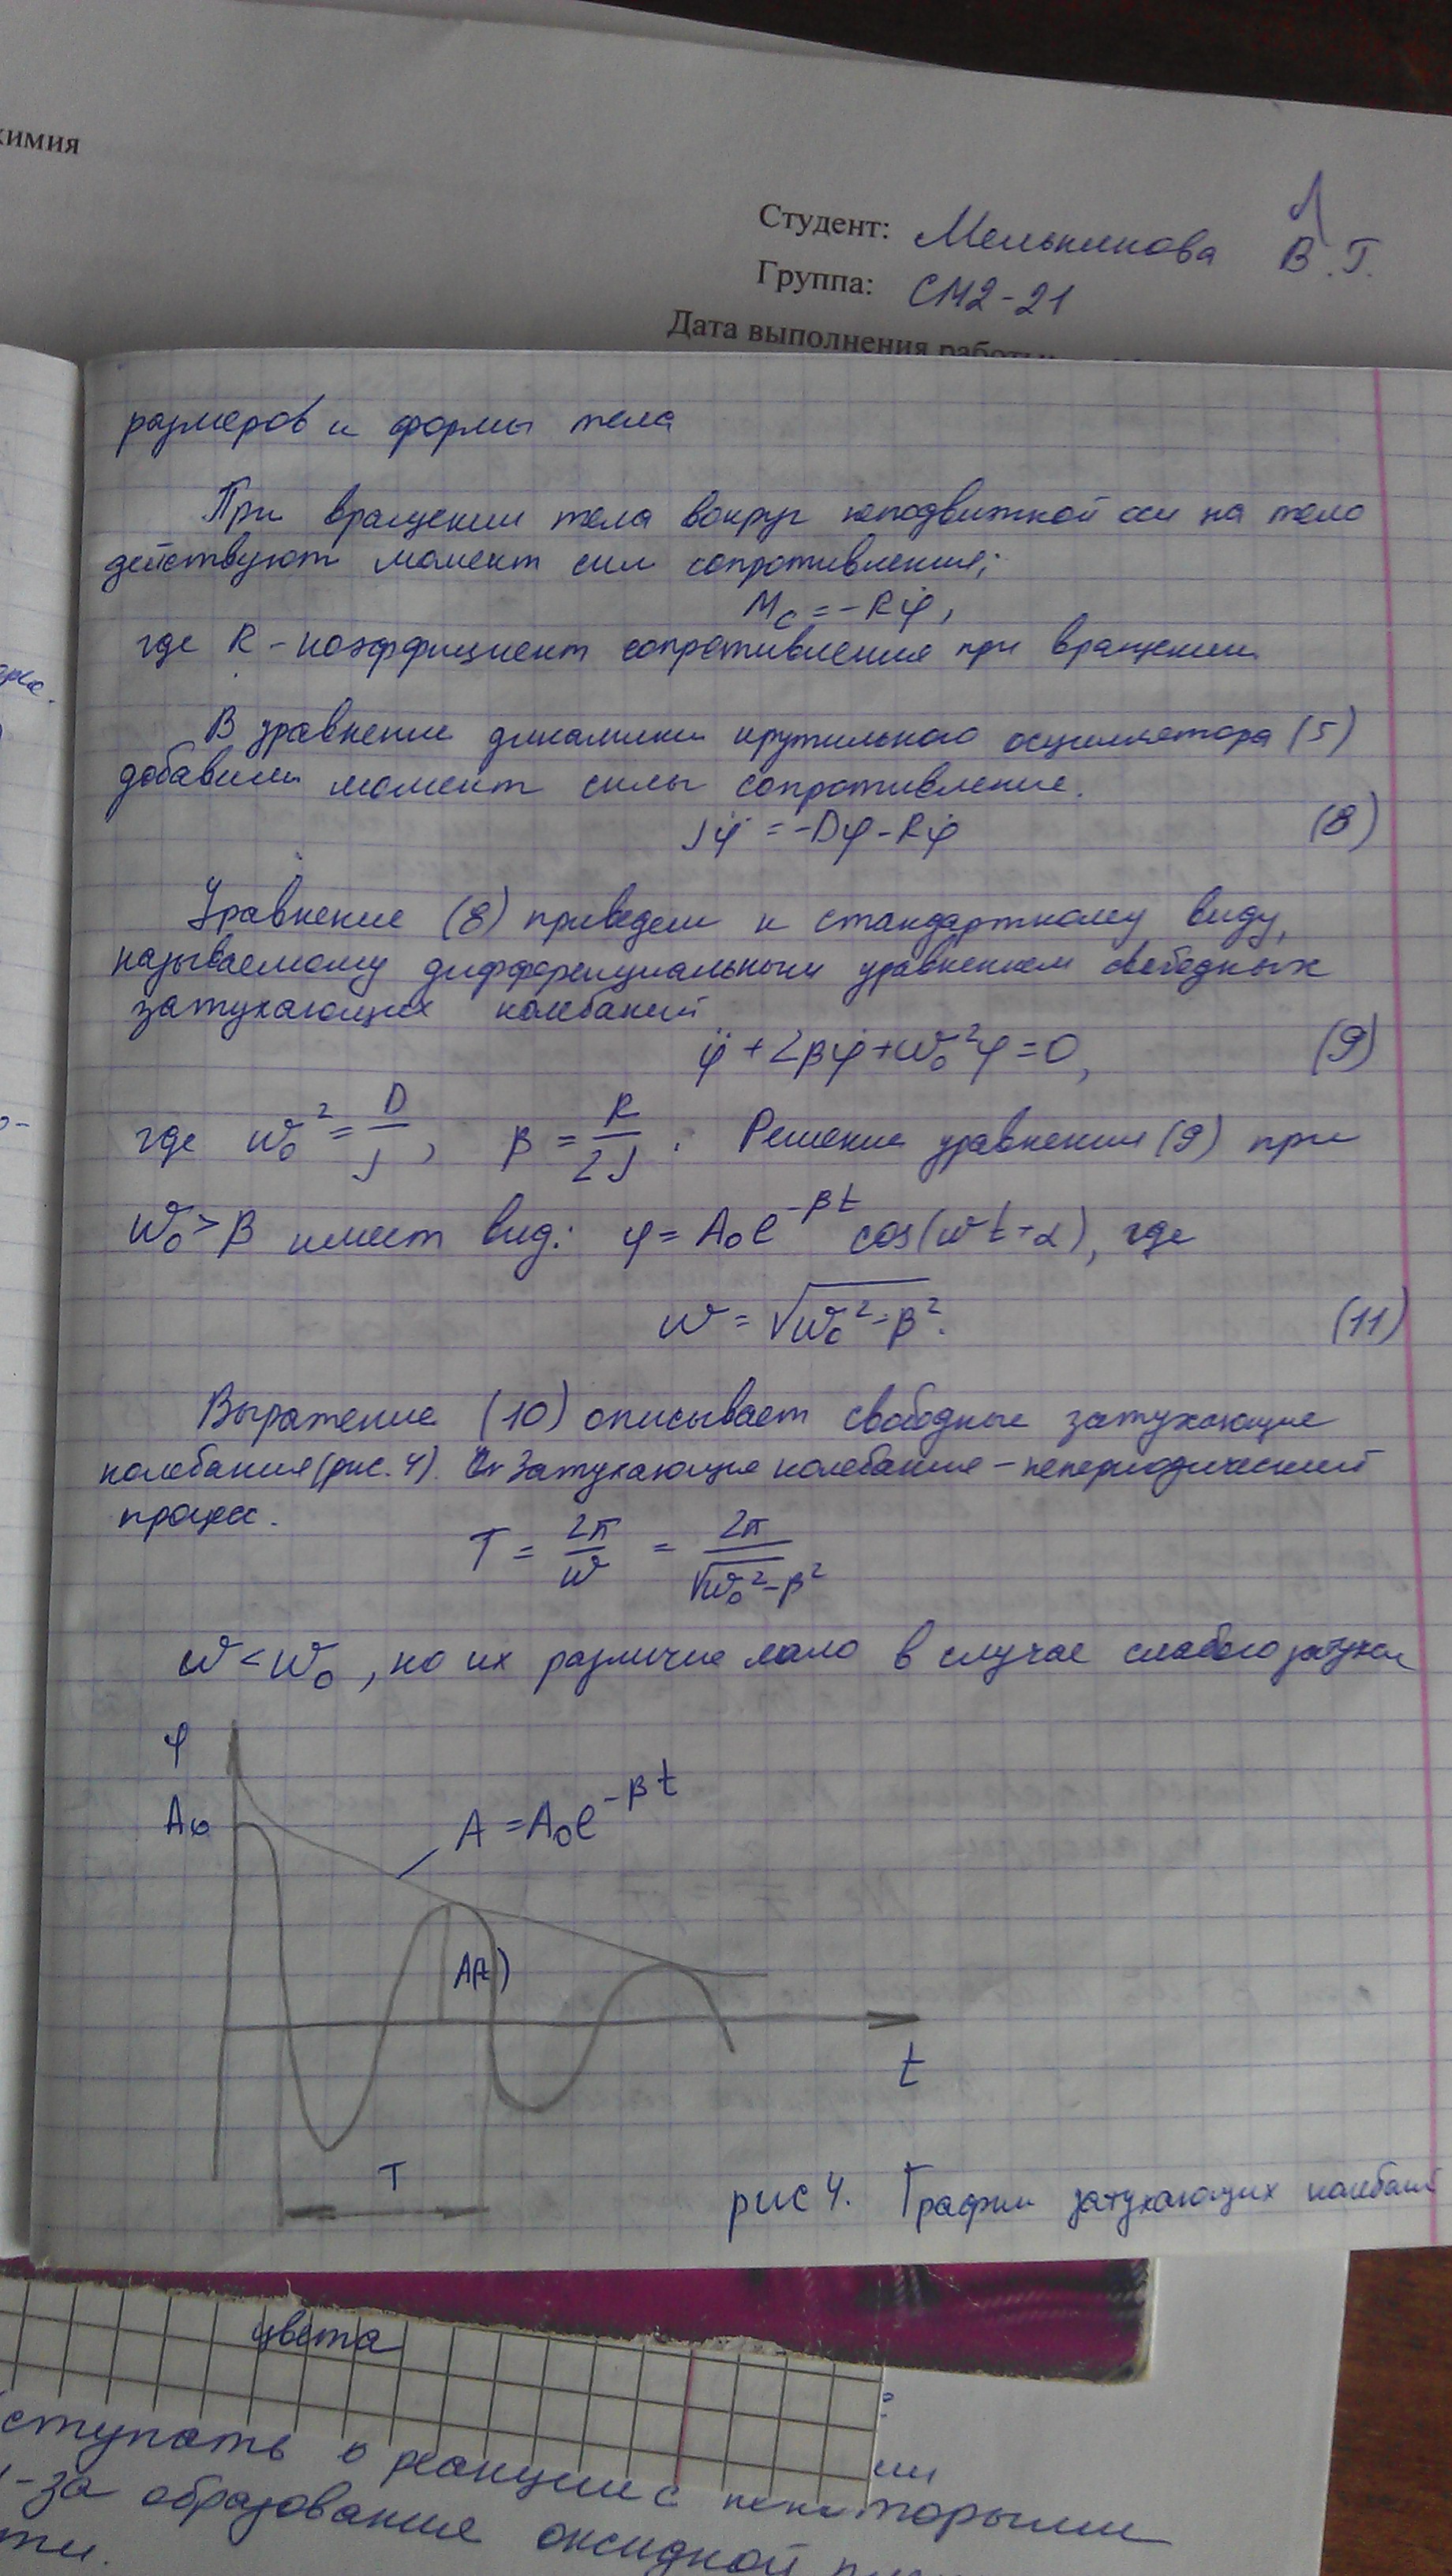 химия
Студент: Мельникова В.Г.
Группа: СМ2-21
Дата выполнения работы:
размеров и формы тела
При вращении тела вокруг неподвижной оси на тело
действуют момент сил сопротивления;
Mc = -Rφ̇,
где R - коэффициент сопротивления при вращении
В уравнение динамики крутильного осциллятора (5)
добавим момент силы сопротивление.
Jφ̈ = -Dφ - Rφ̇ (8)
Уравнение (8) приведем к стандартному виду,
называемому дифференциальным уравнением свободных
затухающих колебаний
φ̈ + 2βφ̇ + ω₀²φ = 0, (9)
где ω₀² = D/J, β = R/2J. Решение уравнения (9) при
ω₀ > β имеет вид: φ = A₀e^(-βt) cos(ωt+α), где
ω = √(ω₀² - β²). (11)
Выражение (10) описывает свободные затухающие
колебания (рис. 4). Затухающие колебание - непериодический
процесс.
T = 2π/ω = 2π/√(ω₀² - β²)
ω < ω₀, но их различие мало в случае слабого затухан
φ
A₀
A = A₀e^(-βt)
A(t)
t
T
рис 4. График затухающих колебаний
цвета
ступать в реакции с некоторыми
-за образование оксидной
ти.